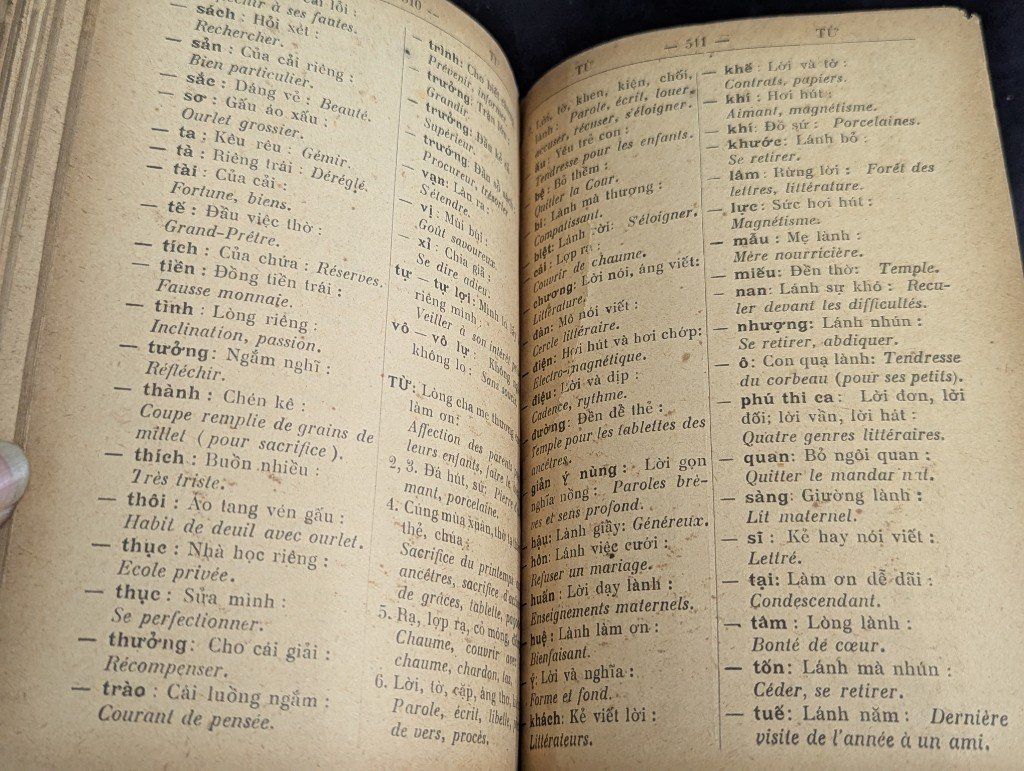 510 —
cải lỗi :
Réfléchir à ses fautes.
— sách : Hỏi xét :
Rechercher.
— sản : Của cải riêng :
Bien particulier.
— sắc : Dáng vẻ : Beauté.
— sơ : Gấu áo xấu :
Ourlet grossier.
— ta : Kêu rêu : Gémir.
— tà : Riêng trái : Déréglé.
— tài : Của cải :
Fortune, biens.
— tế : Đầu việc thờ :
Grand-Prêtre.
— tích : Của chứa : Réserves.
— tiền : Đồng tiền trái :
Fausse monnaie.
— tình : Lòng riêng :
Inclination, passion.
— tưởng: Ngắm nghĩ :
Réfléchir.
— thành : Chén kê :
Coupe remplie de grains de
millet (pour sacrifice).
— thích : Buồn nhiều :
Très triste.
— thôi : Áo tang vén gấu :
Habit de deuil avec ourlet.
— thục : Nhà học riêng :
Ecole privée.
— thục : Sửa mình :
Se perfectionner.
— thưởng: Cho cải giải :
Récompenser.
— trào : Cái luồng ngắm :
Courant de pensée.
— trình: Cho biết
Prévenir, informer
— trưởng: Trận lớn
Grandir
— trưởng: Đầu kẻ
Supérieur.
— trướng: Đầu sổ
Procureur, trésorier
— vạn: Làn ra :
S'étendre.
— vị : Mùi bùi :
Goût savoureux.
— xỉ : Chia giã :
Se dire adieu.
tự — tự lợi : Mình tỏ
riêng mình :
Veiller à son intérêt
vô — vô lự : Không
không lo : Sans souci
TỪ: Lòng cha mẹ thương
làm ơn:
Affection des parents
leurs enfants, faire le
2, 3. Đá hút, sứ: Pierre
mant, porcelaine.
4. Cúng mùa xuân, thờ
thẻ, chùa:
Sacrifice du printemps
ancêtres, sacrifice
de grâces, tablette,
5. Rạ, lợp rạ, cỏ mỏng,
Chaume, couvrir avec
chaume, chardon, las.
6. Lời, tờ, cặp, áng thơ,
Parole, écrit, libelle,
de vers, procès.
TỪ — 511 — TỪ
Lời, tờ, khen, kiện, chối,
lành : Parole, écrit, louer,
accuser, récuser, s'éloigner.
ấu : Yêu trẻ con :
Tendresse pour les enfants.
bệ : Bỏ thềm :
Quitter la Cour.
bi : Lành mà thượng :
Compatissant.
biệt: Lánh rời: S'éloigner.
cái : Lợp rạ :
Couvrir de chaume.
chương: Lời nói, áng viết:
Littérature.
đàn: Mô nói viết :
Cercle littéraire.
điện: Hơi hút và hơi chớp:
Electro-magnétique.
điệu: Lời và dịp :
Cadence, rythme.
đường: Đền dề thẻ :
Temple pour les tablettes des
ancêtres.
giản ý nùng : Lời gọn
nghĩa nồng : Paroles brè-
ves et sens profond.
hậu: Lành giầy: Généreux.
hôn: Lánh việc cưới :
Refuser un mariage.
huấn : Lời dạy lành :
Enseignements maternels.
huệ : Lành làm ơn :
Bienfaisant.
ý: Lời và nghĩa :
Forme et fond.
khách: Kẻ viết lời :
Littérateurs.
— khế : Lời và tờ :
Contrats, papiers.
— khí : Hơi hút :
Aimant, magnétisme.
— khí: Đồ sứ : Porcelaines.
— khước: Lánh bỏ :
Se retirer.
— lâm: Rừng lời : Forêt des
lettres, littérature.
— lực: Sức hơi hút :
Magnétisme.
— mẫu : Mẹ lành :
Mère nourricière.
— miếu: Đền thờ: Temple.
— nan: Lánh sự khó : Recu-
ler devant les difficultés.
— nhượng: Lánh nhún :
Se retirer, abdiquer.
— ô : Con quạ lành: Tendresse
du corbeau (pour ses petits).
— phú thi ca : Lời đơn, lời
đối; lời vần, lời hát :
Quatre genres littéraires.
— quan: Bỏ ngôi quan :
Quitter le mandarinat.
— sàng: Giường lành :
Lit maternel.
— sĩ : Kẻ hay nói viết :
Lettré.
— tại: Làm ơn dễ dãi :
Condescendant.
— tâm : Lòng lành :
Bonté de cœur.
— tốn: Lánh mà nhún :
Céder, se retirer.
— tuế: Lánh năm : Dernière
visite de l'année à un ami.